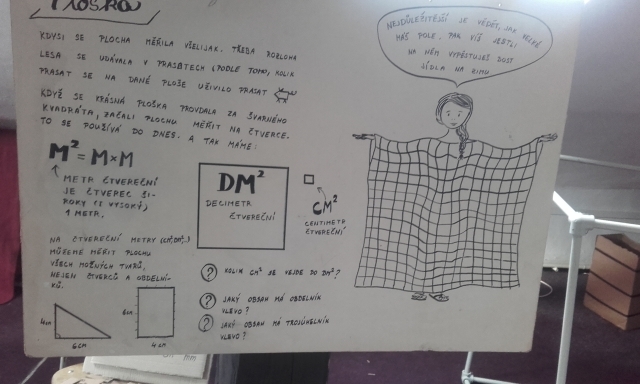 Ploška
KDYSI SE PLOCHA MĚŘILA VŠELIJAK. TŘEBA ROZLOHA
LESA SE UDÁVALA V PRASATECH (PODLE TOHO, KOLIK
PRASAT SE NA DANÉ PLOŠE UŽIVILO PRASAT
KDYŽ SE KRÁSNÁ PLOŠKA PROVDALA ZA ŠVARNÉHO
KVADRÁTA, ZAČALI PLOCHU MĚŘIT NA ČTVERCE.
TO SE POUŽÍVÁ DO DNES. A TAK MÁME:
M² = M×M
METR ČTVEREČNÍ
JE ČTVEREC ŠI-
ROKÝ (I VYSOKÝ)
1 METR.
DM²
DECIMETR
ČTVEREČNÍ
CM²
CENTIMETR
ČTVEREČNÍ
NA ČTVEREČNÍ METRY (CM², DM²..)
MŮŽEME MĚŘIT PLOCHU
VŠECH MOŽNÝCH TVARŮ,
NEJEN ČTVERCŮ A OBDELNÍ-
KŮ.
4cm
6cm
6cm
4cm
? KOLIK CM² SE VEJDE DO DM²?
? JAKÝ OBSAH MÁ OBDELNÍK
VLEVO?
? JAKÝ OBSAH MÁ TROJÚHELNÍK
VLEVO?
NEJDŮLEŽITĚJŠÍ JE VĚDĚT, JAK VELKÉ
MÁŠ POLE. PAK VÍŠ JESTLI
NA NĚM VYPĚSTUJEŠ DOST
JÍDLA NA ZIMU